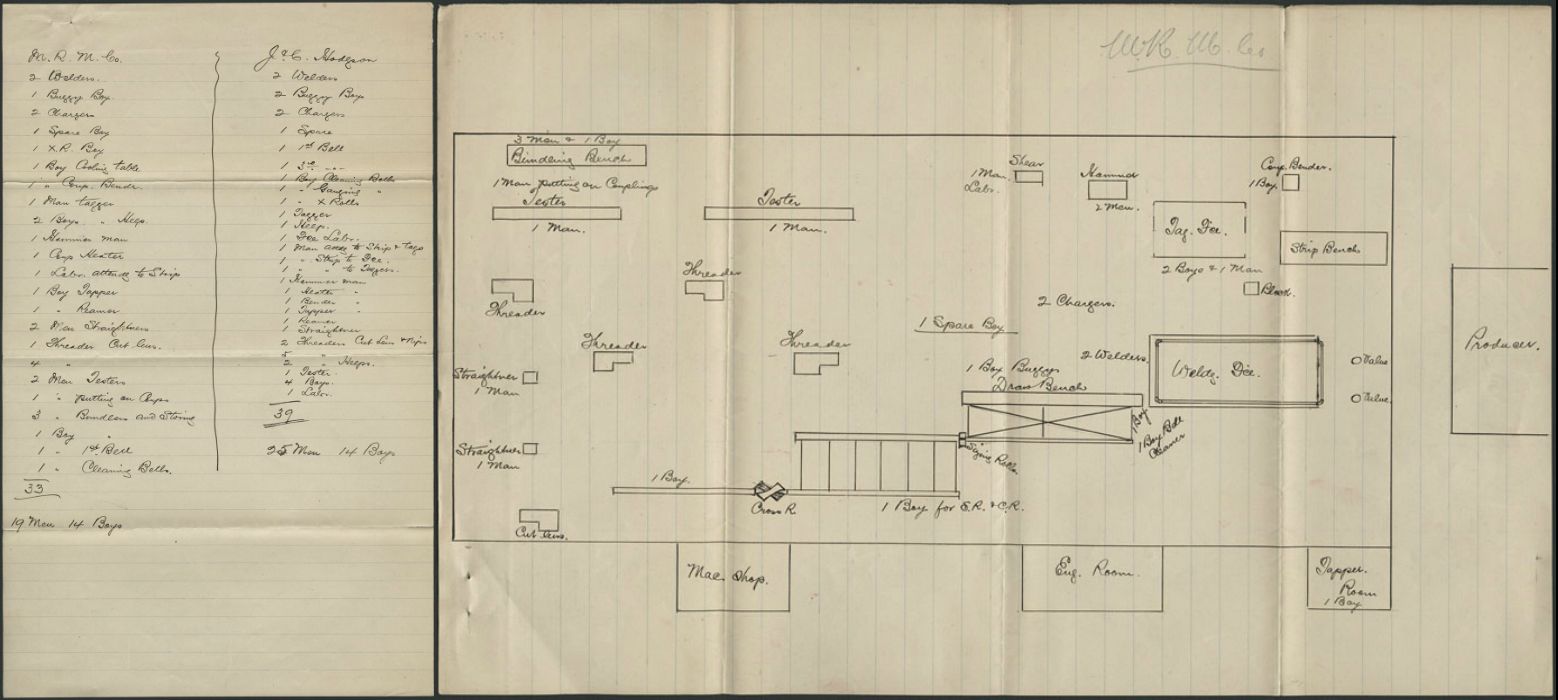 M. R. M. Co.
2 Welders.
1 Buggy Boy.
2 Chargers
1 Spare Boy
1 X.R. Boy
1 Boy Cooling table.
1 " Coup. Bendr.
1 Man tagger
2 Boys " Heep.
1 Hammer man
1 Coup Heater
1 Labr. attend to Strip
1 Boy Tapper
1 " Reamer
2 Men Straightners
1 Threader Cut lens.
4 "
2 Man Testers
1 " putting on Coups
3 " Bundlers and Storing
1 Boy "
1 " 1st Bell
1 " Cleaning Bells.
33
19 Men 14 Boys
J & C. Hodgson
2 Welders
2 Buggy Boys
2 Chargers
1 Spare
1 1st Bell
1 3rd " "
1 Boy Cleaning Bells
1 " Gauging "
1 " X Rolls
1 Tagger
1 Heep.
1 Fce Labr.
1 Man to Strip & tags
1 " Strip to Fce.
1 " " to Taggers.
1 Hammer man
1 Heater "
1 Bender "
1 Tapper "
1 Reamer
1 Straightner
2 Threaders Cut Lens & Nips
5 "
2 " Heeps.
1 Tester.
4 Boys.
1 Labr.
39
25 Men 14 Boys
M. R. M. Co
3 Men & 1 Boy
Bundling Bench
1 Man putting on Couplings
Tester
1 Man.
Tester
1 Man.
Shear
1 Man.
Labr.
Hammer
2 Men.
Coup. Bender.
1 Boy.
Tag. Fce.
2 Boys & 1 Man
Strip Bench
Block.
Threader
Threader
2 Chargers.
1 Spare Boy
Threader
Threader
2 Welders.
Weldg. Fce.
Valve
Valve
Producer.
1 Boy Buggy
Draw Bench
Straightner
1 Man
1 Boy
1 Boy Bell
Cleaner
Straightner
1 Man
Sizing Rolls
1 Boy.
Cross R
1 Boy for S.R. & C.R.
Cut lens.
Mac. Shop.
Eng. Room.
Tapper.
Room
1 Boy